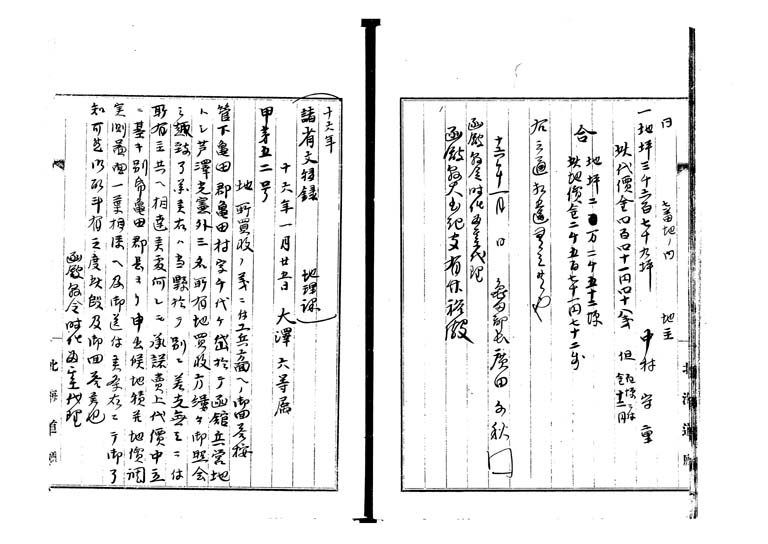 同 七番地ノ内 地主 中村字重
一地坪三千六百七十九坪
此代價金四百四十一円四十八銭 但百坪ニ付金十二円
合 地坪二万二千五十三坪
此地價金二千五百七十一円七十二銭
右之通相違無之候也
十六年一月 日 亀田郡長 廣田千秋 印
函館縣令時任為基代理
函館縣大書記官有竹裕殿
十六年
諸省文移録 地理課
十六年一月廿五日 大澤六等属
甲第五二号
地所買收ノ義ニ付工兵方面ヘ御回答按
管下亀田郡亀田村字千代ヶ岱於テ函館兵営地
トシテ芦澤光憲外三名所有地買收方縷々御照会
之趣致了承候右ハ当縣於テ別ニ差支無之ニ付
所有主共ヘ相達候処何レモ承諾賣上代價申立
ニ基キ別帋亀田郡長ヨリ申出候地積并地價調
実測図面一葉相添ヘ及御送付候条右ニテ御了
知可然御取斗有之度此段及御回答候也
函館縣令時任為基代理
北海道廳
北海道廳